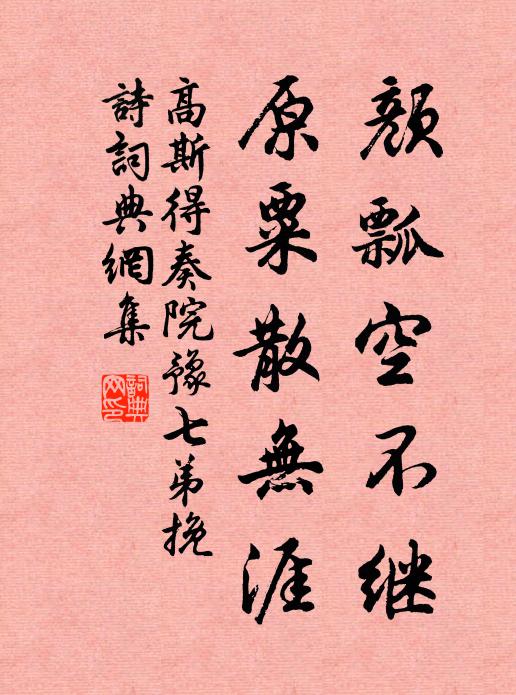 颜瓢空不继
原粟散無涯
高斯得奏院豫七弟挽
詩詞典網集
詞典网印